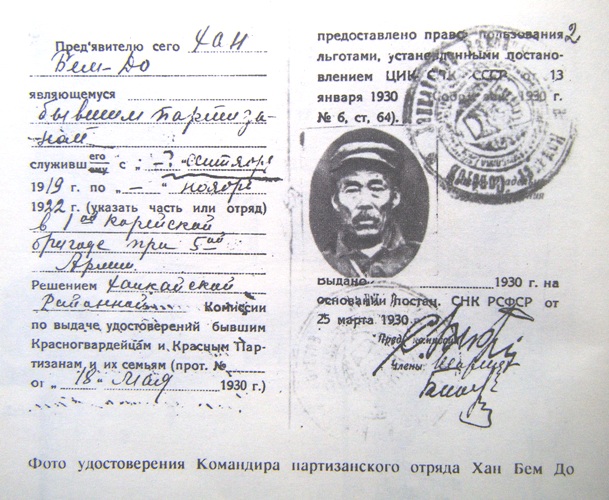 Пред'явителю сего Хан
Бем-До
являющемуся
бывшим партиза-
ном
служивш его ему с "—?" сентября
1919 г. по "—" ноября
1922 г. (указать часть или отряд)
в 1ой Корейской
бригаде при 5ой
Армии.
Решением Ханкайской
Районной Комиссии
по выдаче удостоверений бывшим
Красногвардейцам и Красным Пар-
тизанам и их семьям (прот. №
от „18" Мая 1930 г.)
2
предоставлено право пользования
льготами, установленными постано-
влением ЦИК СНК СССР от 13
января 1930 г. (Собр. зак. 1930 г.
№ 6, ст, 64).
Выдано 1930 г. на
основании постан. СНК РСФСР от
25 марта 1930 г.
Пред. комиссии
Члены
Фото удостоверения Командира партизанского отряда Хан Бем До